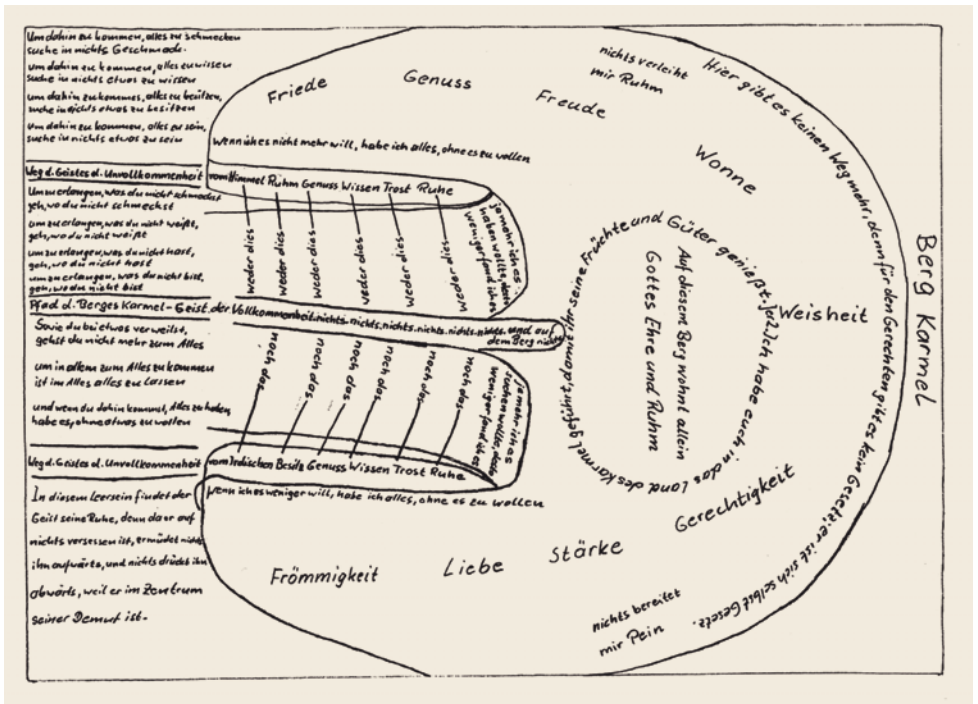 Um dahin zu kommen, alles zu schmecken
suche in nichts Geschmack.
um dahin zu kommen, alles zu wissen
suche in nichts etwas zu wissen
um dahin zu kommen, alles zu besitzen,
suche in nichts etwas zu besitzen
um dahin zu kommen, alles zu sein,
suche in nichts etwas zu sein
Weg d. Geistes d. Unvollkommenheit
Um zu erlangen, was du nicht schmeckst
geh, wo du nicht schmeckst
um zu erlangen, was du nicht weißt,
geh, wo du nicht weißt
um zu erlangen, was du nicht hast,
geh, wo du nicht hast
um zu erlangen, was du nicht bist,
geh, wo du nicht bist
Pfad d. Berges Karmel - Geist der Vollkommenheit. nichts - nichts, nichts, nichts, nichts, nichts, und auf
dem Berg nichts
Sowie du bei etwas verweilst,
gehst du nicht mehr zum Alles
um in allem zum Alles zu kommen
ist im Alles alles zu lassen
und wenn du dahin kommst, Alles zu haben,
habe es, ohne etwas zu wollen
Weg d. Geistes d. Unvollkommenheit
In diesem Leersein findet der
Geist seine Ruhe, denn da er auf
nichts versessen ist, ermüdet nichts
ihn aufwärts, und nichts drückt ihn
abwärts, weil er im Zentrum
seiner Demut ist.
Friede
Genuss
Freude
nichts verleiht
mir Ruhm
Wonne
Wenn ich es nicht mehr will, habe ich alles, ohne es zu wollen
vom Himmel Ruhm Genuss Wissen Trost Ruhe
weder dies
weder dies
weder dies
weder das
weder dies
weder dies
je mehr ich es
haben wollte, desto
weniger fand ich es
noch das
noch das
noch das
noch das
noch das
noch das
je mehr ich es
suchen wollte, desto
weniger fand ich es
vom Irdischen Besitz Genuss Wissen Trost Ruhe
Wenn ich es weniger will, habe ich alles, ohne es zu wollen
Frömmigkeit
Liebe
Stärke
Gerechtigkeit
Weisheit
nichts bereitet
mir Pein
Ich habe euch in das Land des Karmel geführt, damit ihr seine Früchte und Güter genießt.
Auf diesem Berg wohnt allein
Gottes Ehre und Ruhm
Hier gibt es keinen Weg mehr, denn für den Gerechten gibt es kein Gesetz; er ist sich selbst Gesetz.
Berg Karmel